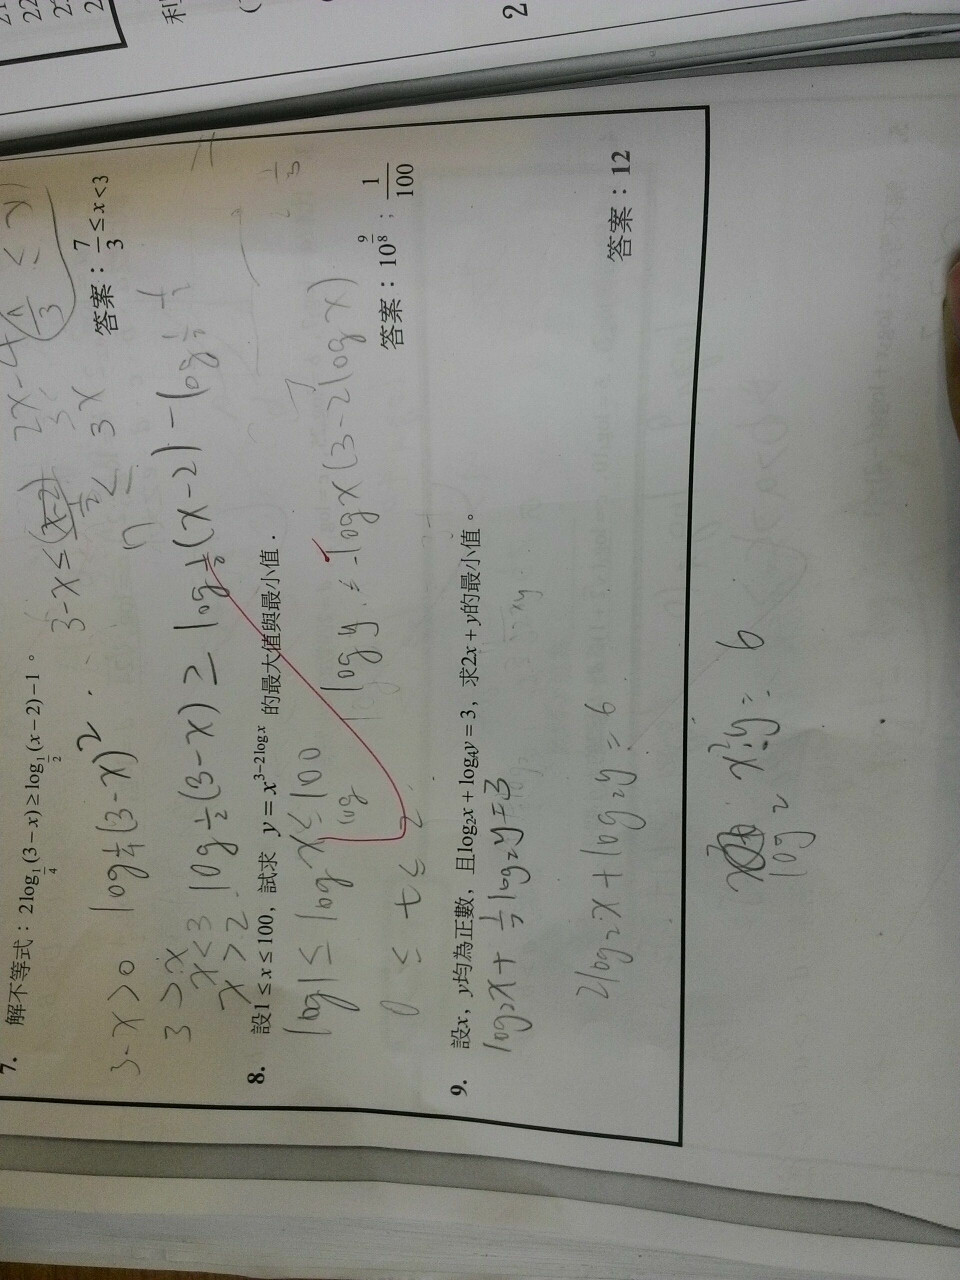 7. 解不等式：2log_{1/4}(3−x)≥log_{1/2}(x−2)−1。
3-x>0 log¼(3-x)²
3-x≤
3>x
x<3
x>2
log½(3-x)≥log½(x-2)-log½½
答案：7/3≤x<3
8. 設1≤x≤100，試求 y=x^{3−2logx} 的最大值與最小值．
log1≤logx≤log100
0≤t≤2
logy=logx(3-2logx)
答案：10^{9/8}；1/100
9. 設x，y均為正數，且log₂x+log₄y=3，求2x+y的最小值。
log₂x+½log₂y=3
2log₂x+log₂y=6
答案：12
log₂x²y=6